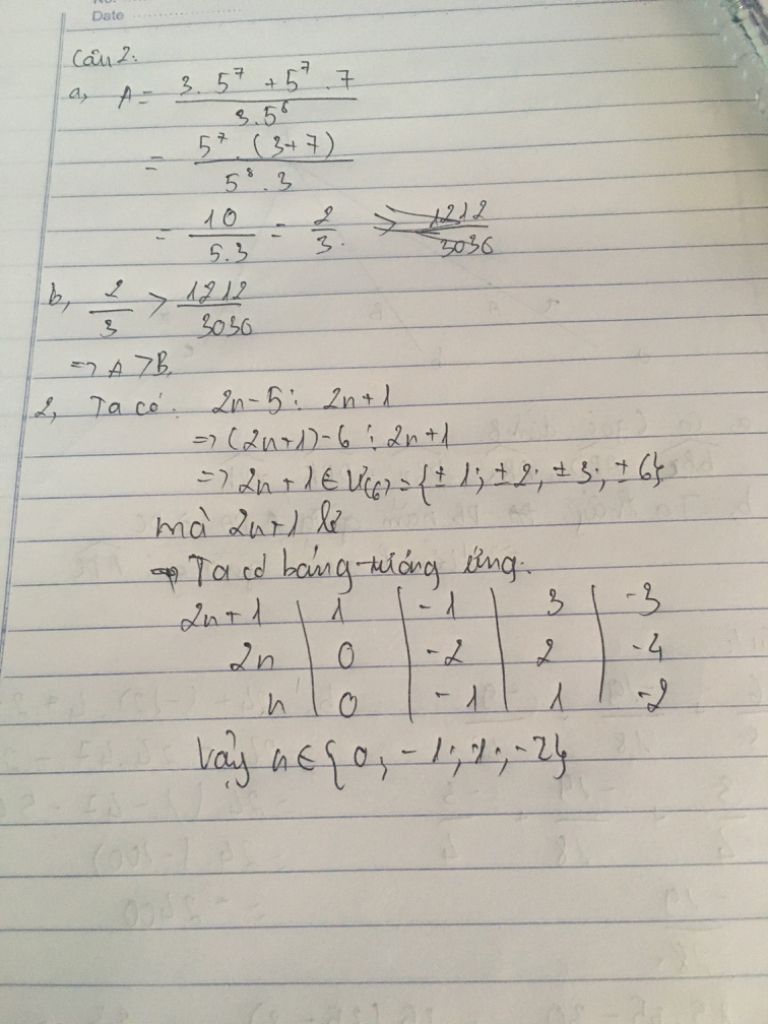 Date
Câu 2:
a, A = \frac{3.5^7 + 5^7.7}{3.5^8}
= \frac{5^7.(3+7)}{5^8.3}
= \frac{10}{5.3} = \frac{2}{3}.
b, \frac{2}{3} > \frac{1212}{3036}
=> A > B.
2, Ta có: 2n-5 ⋮ 2n+1
=> (2n+1)-6 ⋮ 2n+1
=> 2n+1 ∈ Ư(6) = {±1; ±2; ±3; ±6}
mà 2n+1 lẻ
=> Ta có bảng tương ứng.
2n+1 | 1 | -1 | 3 | -3
2n | 0 | -2 | 2 | -4
n | 0 | -1 | 1 | -2
Vậy n ∈ {0; -1; 1; -2}